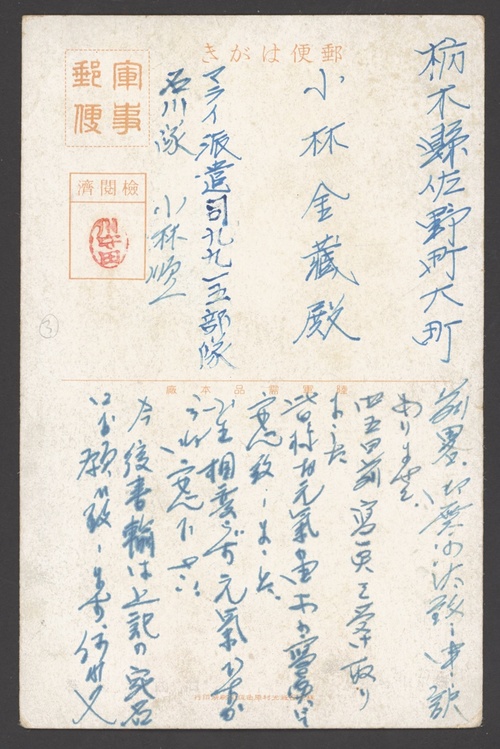 郵便はがき
軍事
郵便
檢閲濟
栃木縣佐野町大町
小林金藏殿
マライ派遣司九九一五部隊
石川隊 小林順一
陸軍需品本廠
前略、御無沙汰致し申訳
ありません
四五日前寫真を受取り
ました
皆様お元氣
安心致しました
小生相変らず元氣
安心下さい
今後書輸は上記の宛名
にお願ひ致します